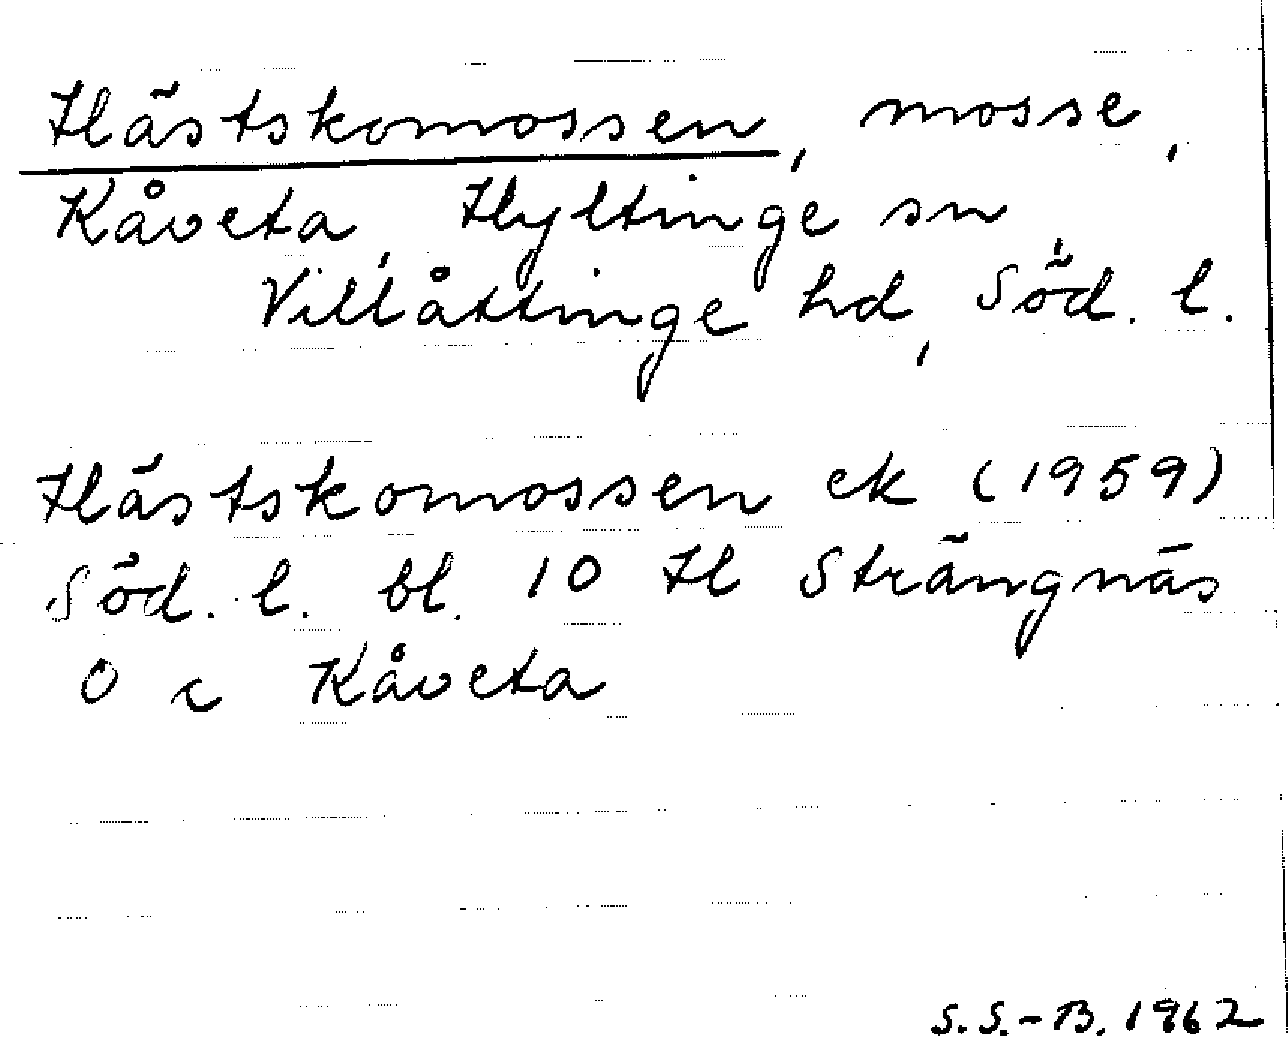 Hästskomossen, mosse,
Kåveta, Hyltinge sn,
Villåttinge hd, Söd. l.
Hästskomossen ek (1959)
Söd. l. bl. 10 H Strängnäs
O c Kåveta
S.S.-B. 1962